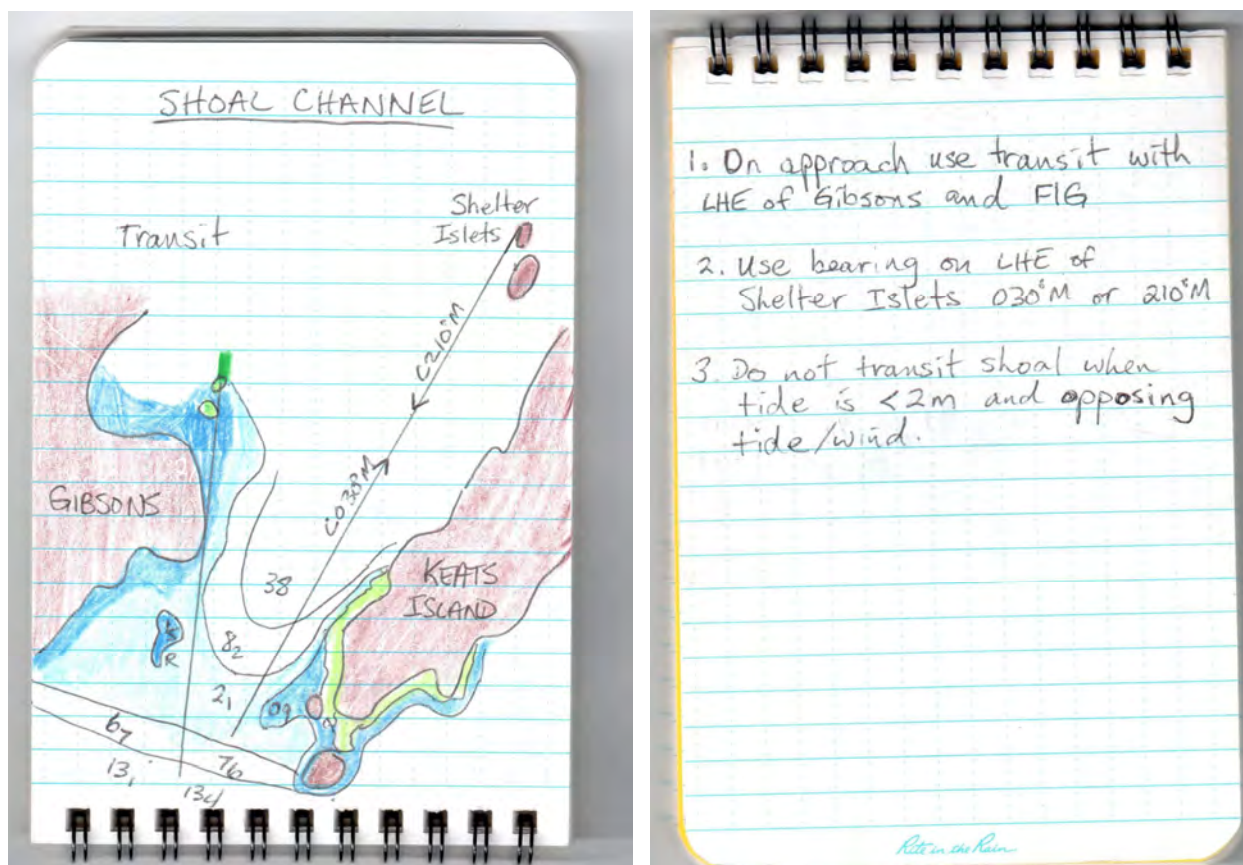 SHOAL CHANNEL
Shelter
Islets
Transit
C210°M
C030°M
GIBSONS
KEATS
ISLAND
38
K
R
8₂
2₁
0₉
6₇
7₆
13₁
13₄
1. On approach use transit with
LHE of Gibsons and FlG
2. Use bearing on LHE of
Shelter Islets 030°M or 210°M
3. Do not transit shoal when
tide is <2m and opposing
tide/wind.
Rite in the Rain